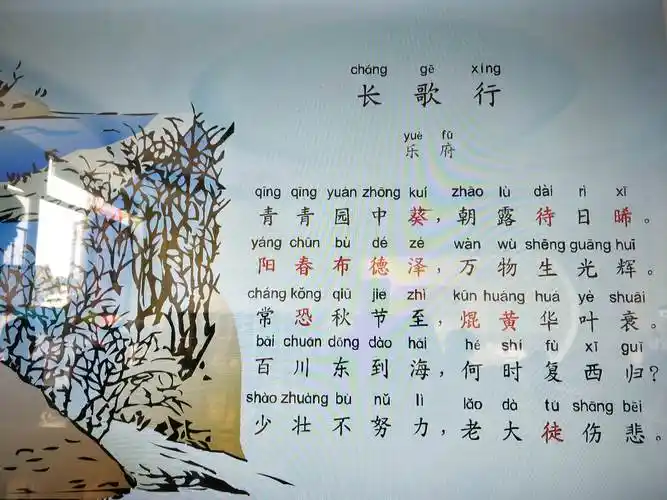 cháng gē xíng
长歌行
yuè fǔ
乐府
qīng qīng yuán zhōng kuí zhāo lù dài rì xī
青青园中葵，朝露待日晞。
yáng chūn bù dé zé wàn wù shēng guāng huī
阳春布德泽，万物生光辉。
cháng kǒng qiū jié zhì kūn huáng huá yè shuāi
常恐秋节至，焜黄华叶衰。
bǎi chuān dōng dào hǎi hé shí fù xī guī
百川东到海，何时复西归？
shào zhuàng bù nǔ lì lǎo dà tú shāng bēi
少壮不努力，老大徒伤悲。